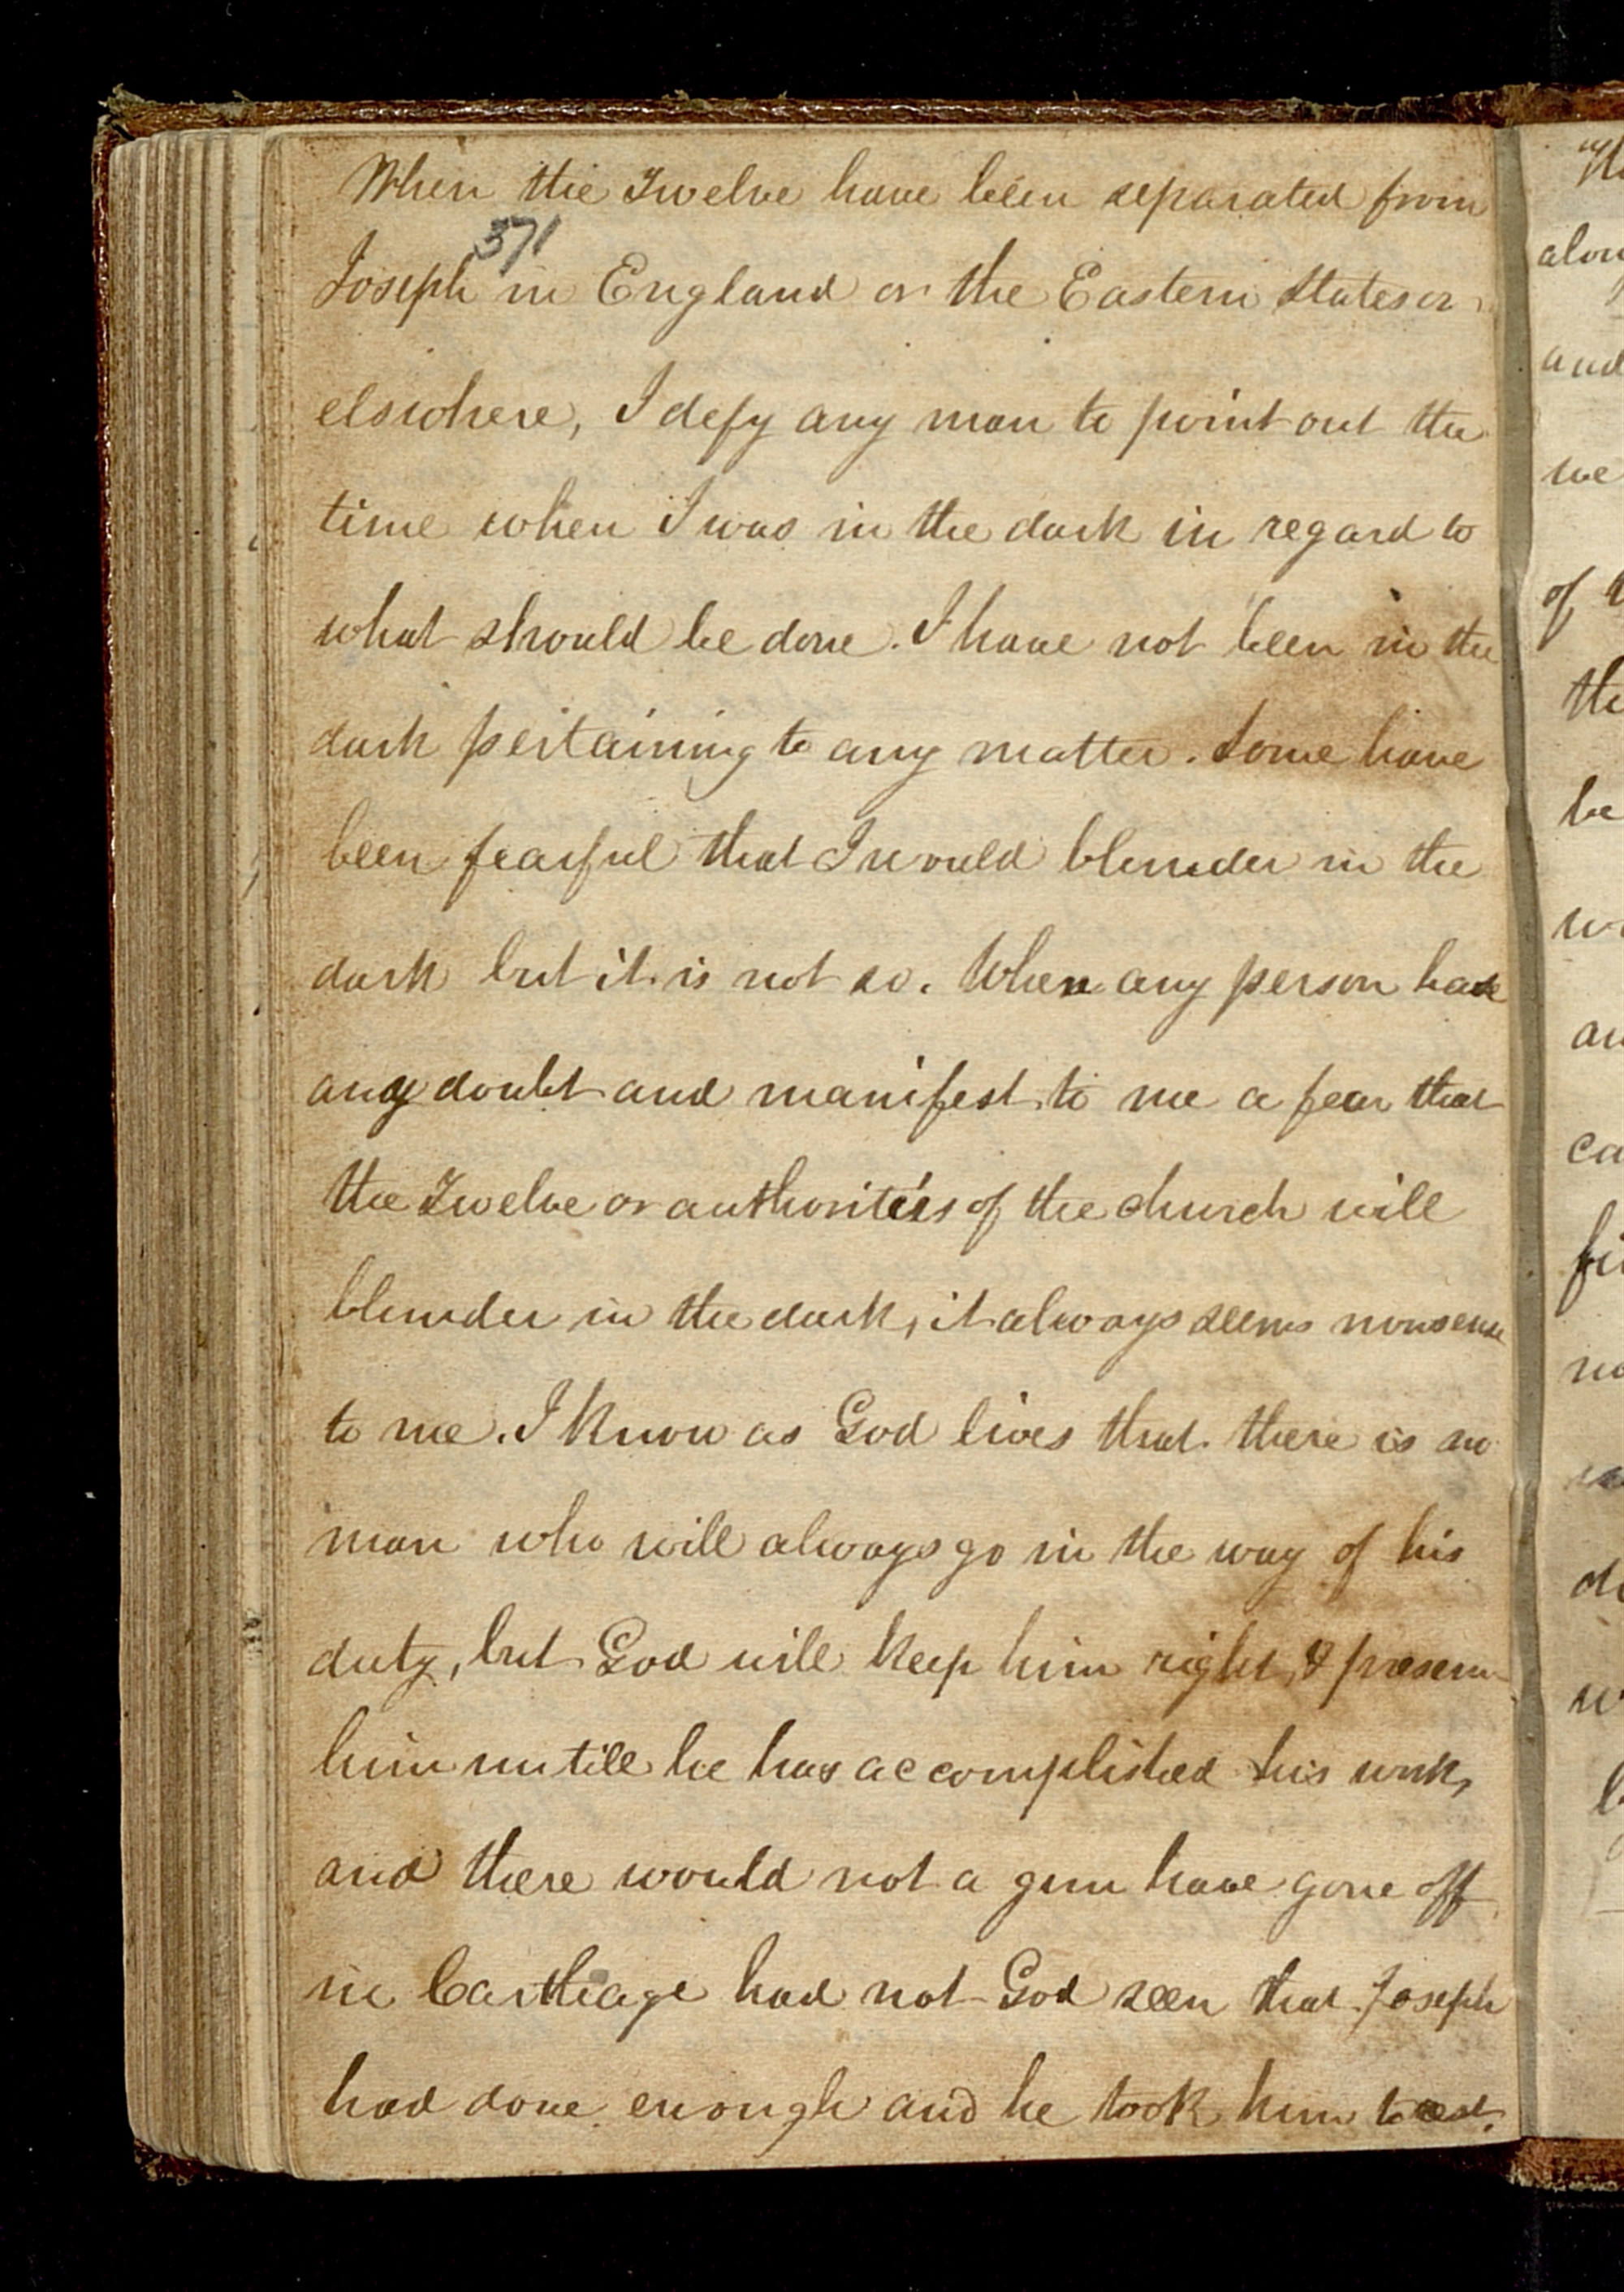 When the Twelve have been separated from
371
Joseph in England or the Eastern States or
elswhere, I defy any man to point out the
time when I was in the dark in regard to
what should be done. I have not been in the
dark pertaining to any matter. Some have
been fearful that I would blunder in the
dark but it is not so. When any person has
any doubt and manifest to me a fear that
the Twelve or authorities of the church will
blunder in the dark, it always seems nonsense
to me. I know as God lives that there is no
man who will always go in the way of his
duty, but God will keep him right, & preserve
him untill he has accomplished his work,
and there would not a gun have gone off
in Carthage had not God seen that Joseph
had done enough and he took him to rest.
alon
and
we
of
the
be
au
ca
fi
no
w